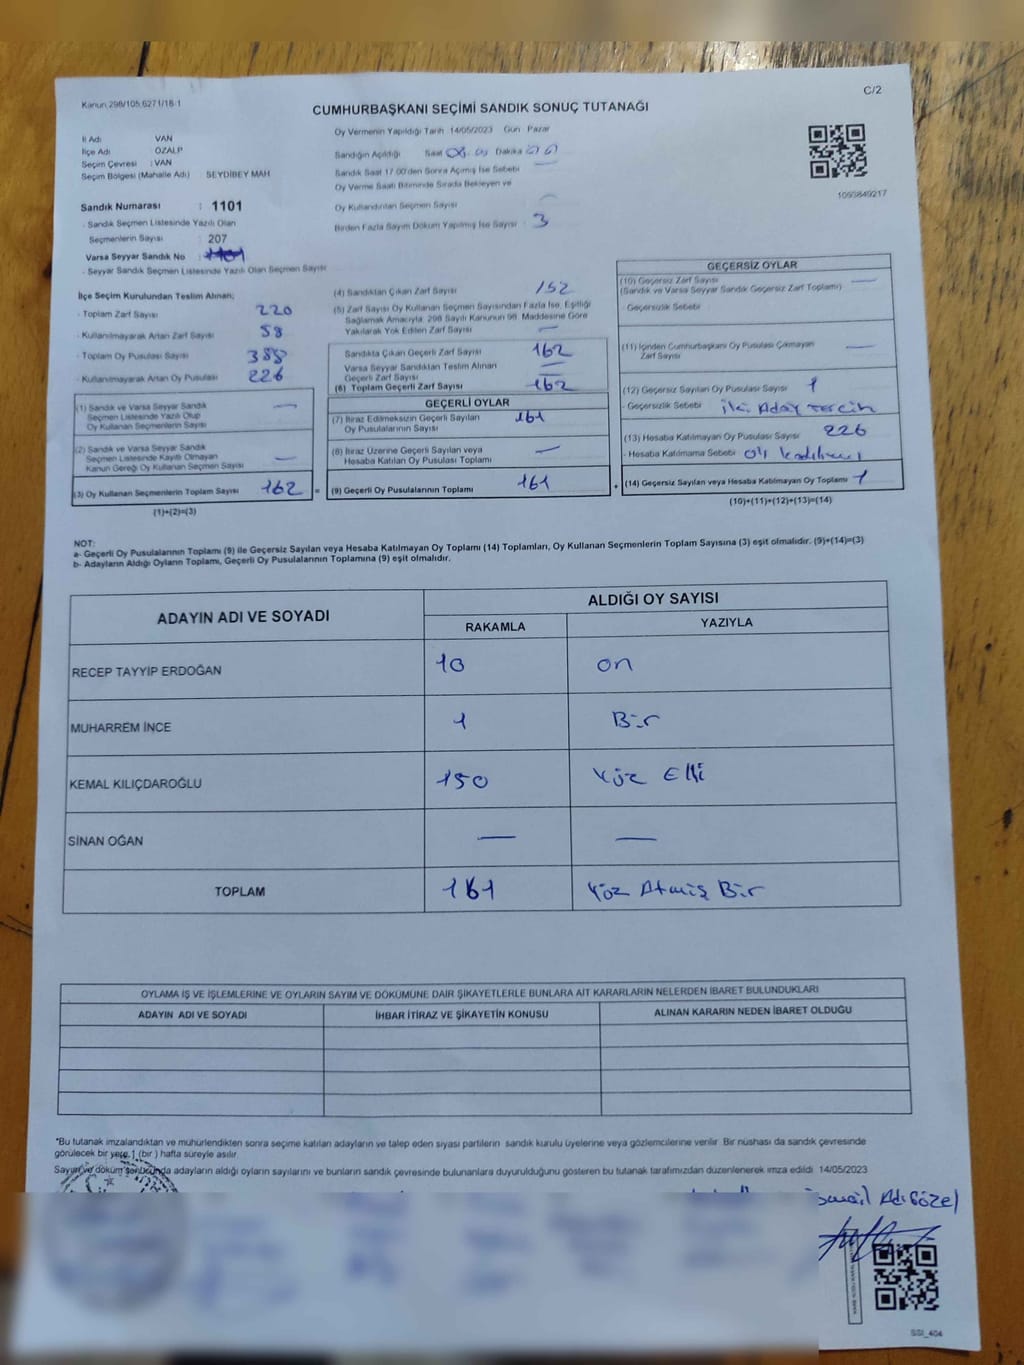 Kanun 298/105,6271/18-1
C/2
CUMHURBAŞKANI SEÇİMİ SANDIK SONUÇ TUTANAĞI
İl Adı VAN
İlçe Adı ÖZALP
Seçim Çevresi : VAN
Seçim Bölgesi (Mahalle Adı) SEYDİBEY MAH
Sandık Numarası : 1101
- Sandık Seçmen Listesinde Yazılı Olan
Seçmenlerin Sayısı : 207
Varsa Seyyar Sandık No :
- Seyyar Sandık Seçmen Listesinde Yazılı Olan Seçmen Sayısı
Oy Vermenin Yapıldığı Tarih 14/05/2023 Gün Pazar
Sandığın Açıldığı Saat Dakika
Sandık Saat 17.00'den Sonra Açımış İse Sebebi
Oy Verme Saati Bitiminde Sırada Bekleyen ve
Oy Kullandırılan Seçmen Sayısı
Birden Fazla Sayım Döküm Yapılmış İse Sayısı 3
1095849217
İlçe Seçim Kurulundan Teslim Alınan;
- Toplam Zarf Sayısı 220
- Kullanılmayarak Artan Zarf Sayısı 58
- Toplam Oy Pusulası Sayısı 388
- Kullanılmayarak Artan Oy Pusulası 226
(1) Sandık ve Varsa Seyyar Sandık
Seçmen Listesinde Yazılı Olup
Oy Kullanan Seçmenlerin Sayısı —
(2) Sandık ve Varsa Seyyar Sandık
Seçmen Listesinde Kayıtlı Olmayan
Kanun Gereği Oy Kullanan Seçmen Sayısı —
(3) Oy Kullanan Seçmenlerin Toplam Sayısı 162 =
(1)+(2)=(3)
(4) Sandıktan Çıkan Zarf Sayısı 152
(5) Zarf Sayısı Oy Kullanan Seçmen Sayısından Fazla İse, Eşitliği
Sağlamak Amacıyla, 298 Sayılı Kanunun 98. Maddesine Göre
Yakılarak Yok Edilen Zarf Sayısı —
Sandıkta Çıkan Geçerli Zarf Sayısı 162
Varsa Seyyar Sandıktan Teslim Alınan
Geçerli Zarf Sayısı —
(6) Toplam Geçerli Zarf Sayısı 162
GEÇERLİ OYLAR
(7) İtiraz Edilmeksizin Geçerli Sayılan
Oy Pusulalarının Sayısı 161
(8) İtiraz Üzerine Geçerli Sayılan veya
Hesaba Katılan Oy Pusulası Toplamı —
(9) Geçerli Oy Pusulalarının Toplamı 161 +
GEÇERSİZ OYLAR
(10) Geçersiz Zarf Sayısı —
(Sandık ve Varsa Seyyar Sandık Geçersiz Zarf Toplamı)
- Geçersizlik Sebebi:
(11) İçinden Cumhurbaşkanı Oy Pusulası Çıkmayan
Zarf Sayısı —
(12) Geçersiz Sayılan Oy Pusulası Sayısı 1
- Geçersizlik Sebebi : iki Aday tercih
(13) Hesaba Katılmayan Oy Pusulası Sayısı 226
- Hesaba Katılmama Sebebi
(14) Geçersiz Sayılan veya Hesaba Katılmayan Oy Toplamı 1
(10)+(11)+(12)+(13)=(14)
NOT:
a- Geçerli Oy Pusulalarının Toplamı (9) ile Geçersiz Sayılan veya Hesaba Katılmayan Oy Toplamı (14) Toplamları, Oy Kullanan Seçmenlerin Toplam Sayısına (3) eşit olmalıdır. (9)+(14)=(3)
b- Adayların Aldığı Oyların Toplamı, Geçerli Oy Pusulalarının Toplamına (9) eşit olmalıdır.
ADAYIN ADI VE SOYADI ALDIĞI OY SAYISI
RAKAMLA YAZIYLA
RECEP TAYYİP ERDOĞAN 10 on
MUHARREM İNCE 1 Bir
KEMAL KILIÇDAROĞLU 150 Yüz Elli
SİNAN OĞAN — —
TOPLAM 161 Yüz Atmış Bir
OYLAMA İŞ VE İŞLEMLERİNE VE OYLARIN SAYIM VE DÖKÜMÜNE DAİR ŞİKAYETLERLE BUNLARA AİT KARARLARIN NELERDEN İBARET BULUNDUKLARI
ADAYIN ADI VE SOYADI İHBAR İTİRAZ VE ŞİKAYETİN KONUSU ALINAN KARARIN NEDEN İBARET OLDUĞU
*Bu tutanak imzalandıktan ve mühürlendikten sonra seçime katılan adayların ve talep eden siyasi partilerin sandık kurulu üyelerine veya gözlemcilerine verilir. Bir nüshası da sandık çevresinde
görülecek bir yere 1 (bir) hafta süreyle asılır.
Sayım ve döküm sonucunda adayların aldığı oyların sayılarını ve bunların sandık çevresinde bulunanlara duyurulduğunu gösteren bu tutanak tarafımızdan düzenlenerek imza edildi 14/05/2023
İsmail Adıgüzel
SSI_404